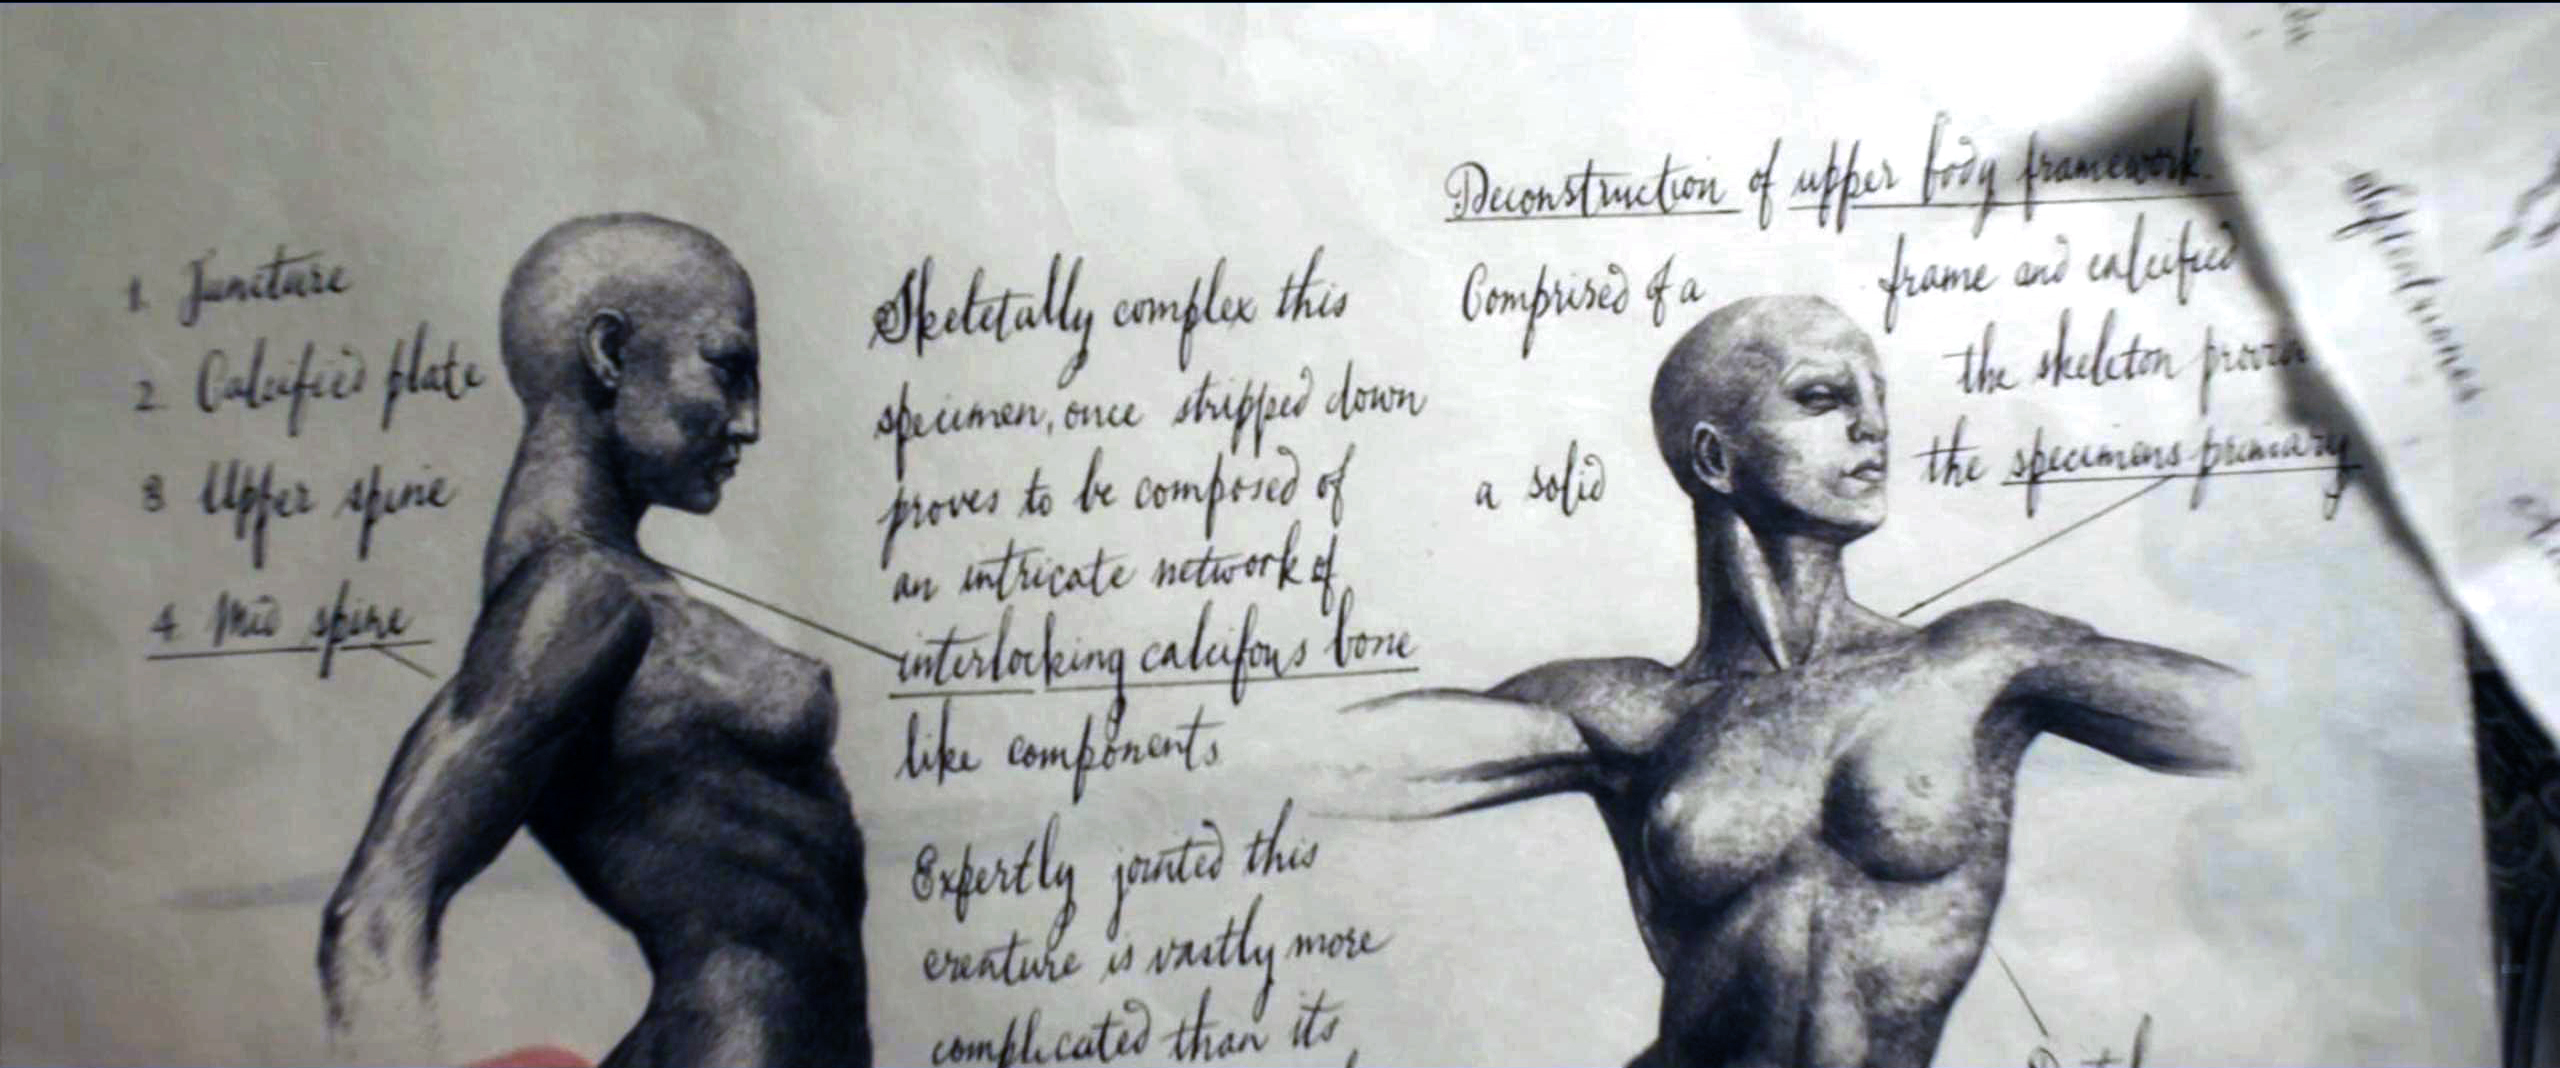 1. Juncture
2. Calcified plate
3 Upper spine
4. Mid spine
Skeletally complex this
specimen, once stripped down
proves to be composed of
an intricate network of
interlocking calcifous bone
like components
Expertly jointed this
creature is vastly more
complicated than its
Deconstruction of upper body framework.
Comprised of a frame and calcified
the skeleton
a solid the specimens primary